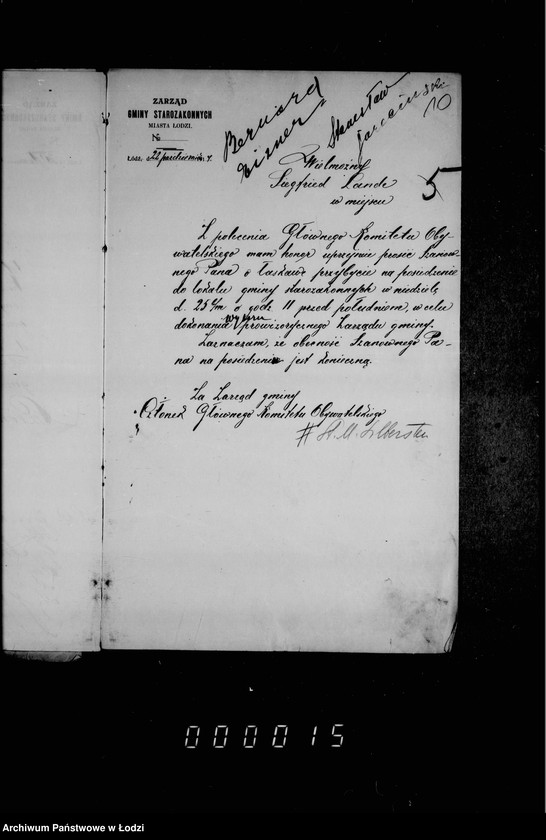 ZARZĄD
GMINY STAROZAKONNYCH
MIASTA ŁODZI.
№
Łódź, 22 października 1914 r.
Bernard
Eisner
Stanisław
Jarociński
10
Wielmożny
Siegfried Lande
w miejscu
5
Z polecenia Głównego Komitetu Oby-
watelskiego mam honor uprzejmie prosić Szanow-
nego Pana o łaskawe przybycie na posiedzenie
do lokalu gminy starozakonnych w niedzielę
d. 25 b/m o godz. 11 przed południem, w celu
dokonania wyboru prowizorycznego Zarządu gminy.
Zaznaczam, że obecność Szanownego Pa-
na na posiedzeniu jest konieczną.
Za Zarząd gminy
Członek Głównego Komitetu Obywatelskiego
000015
Archiwum Państwowe w Łodzi